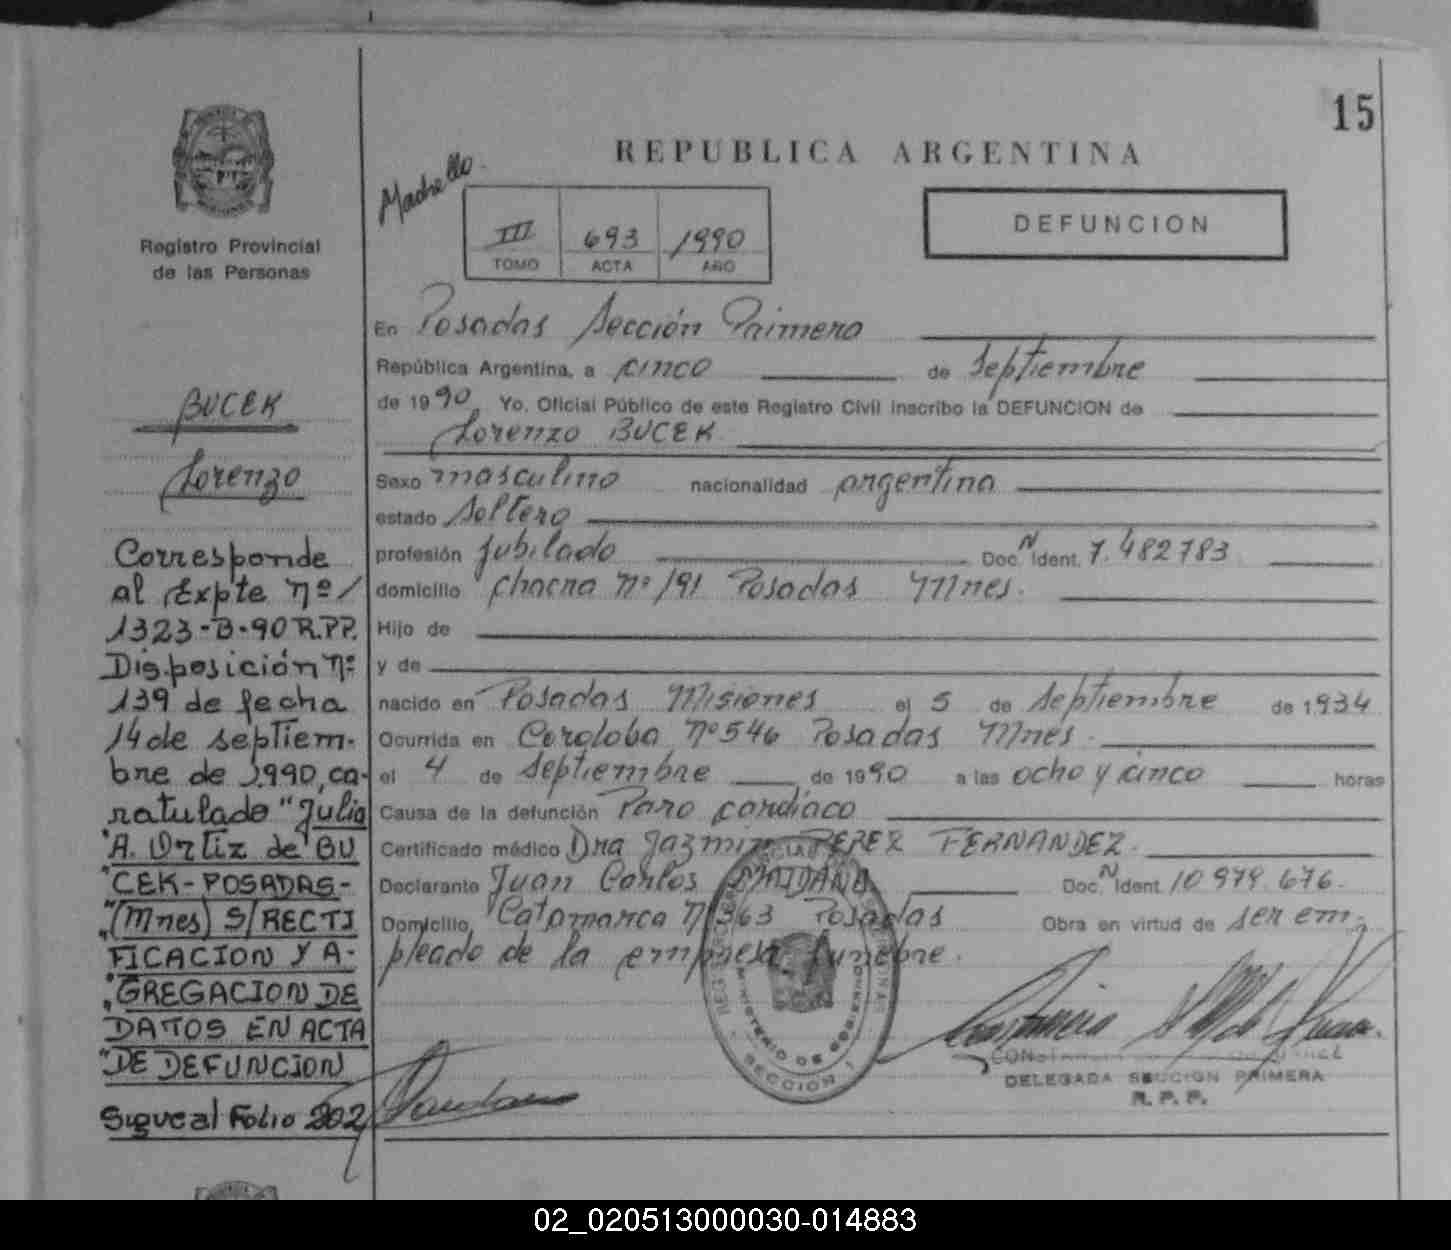 15
REPUBLICA ARGENTINA
DEFUNCION
III 693 1990
TOMO ACTA AÑO
Registro Provincial
de las Personas
BUCEK
Lorenzo
Corresponde
al Expte Nº/
1323-B-90 R.P.P.
Disposición Nº
139 de fecha
14 de septiem-
bre de 1.990, ca-
ratulado "Julia
"A. Ortiz de BU
"CEK-POSADAS-
"(Mnes) S/RECTI
FICACION Y A-
"GREGACION DE
DATOS EN ACTA
"DE DEFUNCION
Sigue al Folio 202
En Posadas Sección Primera
República Argentina, a cinco de Septiembre
de 1990 Yo, Oficial Público de este Registro Civil inscribo la DEFUNCION de
Lorenzo BUCEK
Sexo masculino nacionalidad argentina
estado Soltero
profesión jubilado Doc. N Ident. 7.482783
domicilio chacra Nº 191 Posadas Mnes.
Hijo de
y de
nacido en Posadas Misiones el 5 de Septiembre de 1934
Ocurrida en Cordoba Nº 546 Posadas Mnes.
el 4 de Septiembre de 1990 a las ocho y cinco horas
Causa de la defunción Paro cardíaco
Certificado médico Dra Jazmin PEREZ FERNANDEZ.
Declarante Juan Carlos MAIDANA Doc. N Ident. 10 979.676.
Domicilio Catamarca Nº 363 Posadas Obra en virtud de ser em-
pleado de la empresa funebre.
MINISTERIO DE GOBIERNO
SECCIÓN 1
DELEGADA SECCION PRIMERA
R. P. P.
02_020513000030-014883